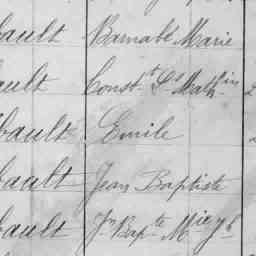 bault Barnabé Marie
ault Const.t Ls Math.in 2
bault Emile
bault Jean Baptiste
bault Jn Bapte Mie Jh